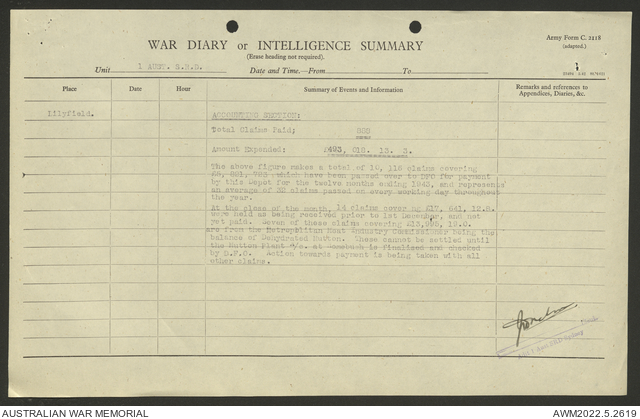 Army Form C. 2118
(adapted.)
WAR DIARY or INTELLIGENCE SUMMARY
(Erase heading not required).
Unit 1 AUST. S.R.D. Date and Time.—From To
Place
Date
Hour
Summary of Events and Information
Remarks and references to
Appendices, Diaries, &c.
Lilyfield.
ACCOUNTING SECTION:
Total Claims Paid;
Amount Expended; £493, 618. 13. 3.
The above figure makes a total of claims covering
which have been passed over to DFO for payment
by this Depot for the twelve months ending 1943, and represents
an average of 32 claims passed on every working day throughout
the year.
At the close of the month, 14 claims covering £17, 641. 12.8.
were held as being received prior to 1st December, and not
yet paid. Seven of these claims covering 19.0.
are from the Metropolitan Meat Industry Commissioner being the
balance of Dehydrated Mutton. These cannot be settled until
the Mutton Plant at Homebush is finalised and checked
by D.F.O. Action towards payment is being taken with all
other claims.
AUSTRALIAN WAR MEMORIAL
AWM2022.5.2619